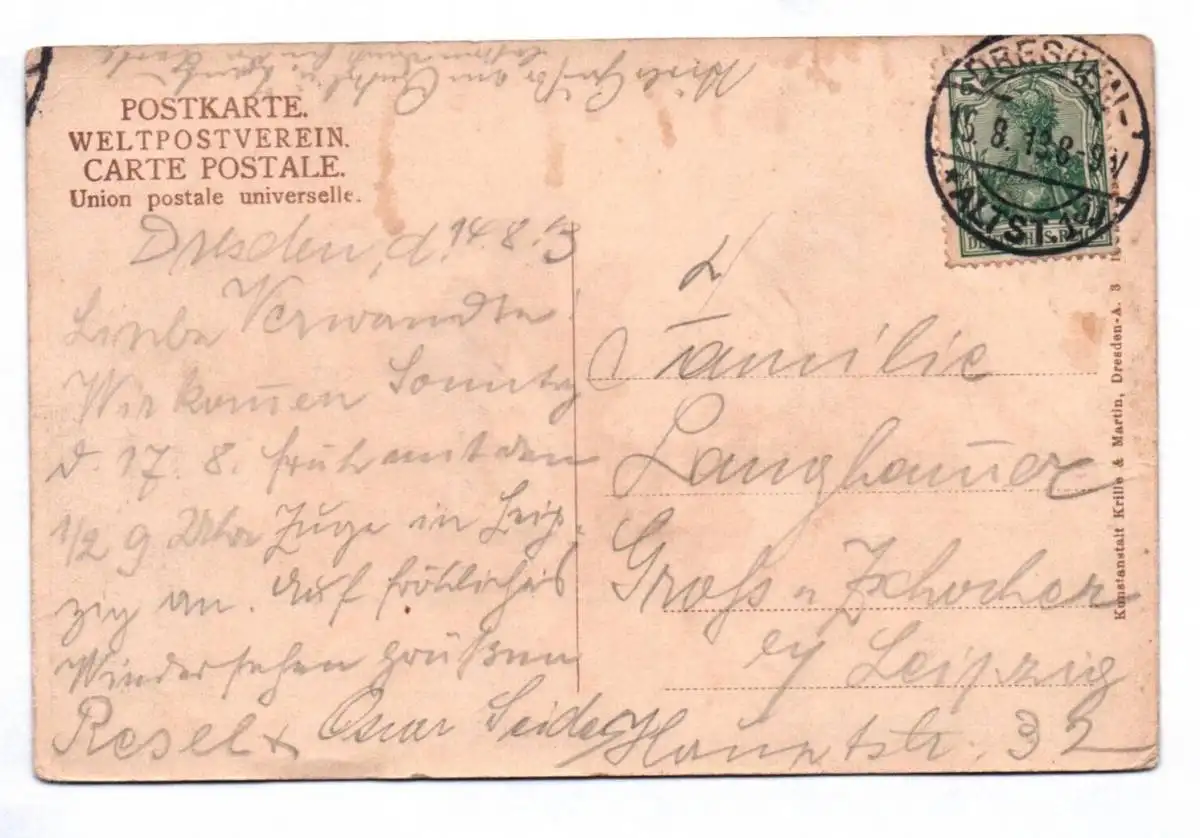 POSTKARTE.
WELTPOSTVEREIN.
CARTE POSTALE.
Union postale universelle.
DRESDEN-
15. 8. 13. 8-9 V
* ALTST.
DEUTSCHES REICH
Dresden, d. 14.8.13
Liebe Verwandte!
Wir kommen Sonntag
d. 17. 8. früh mit dem
1/2 9 Uhr Zuge in Leip-
zig an. Auf fröhliches
Wiedersehen grüßen
Resel & Oscar Seidel
Familie
Langhauer
Groß Zschocher
Leipzig
Hauptstr. 32
Kunstanstalt Krille & Martin, Dresden-A. 3